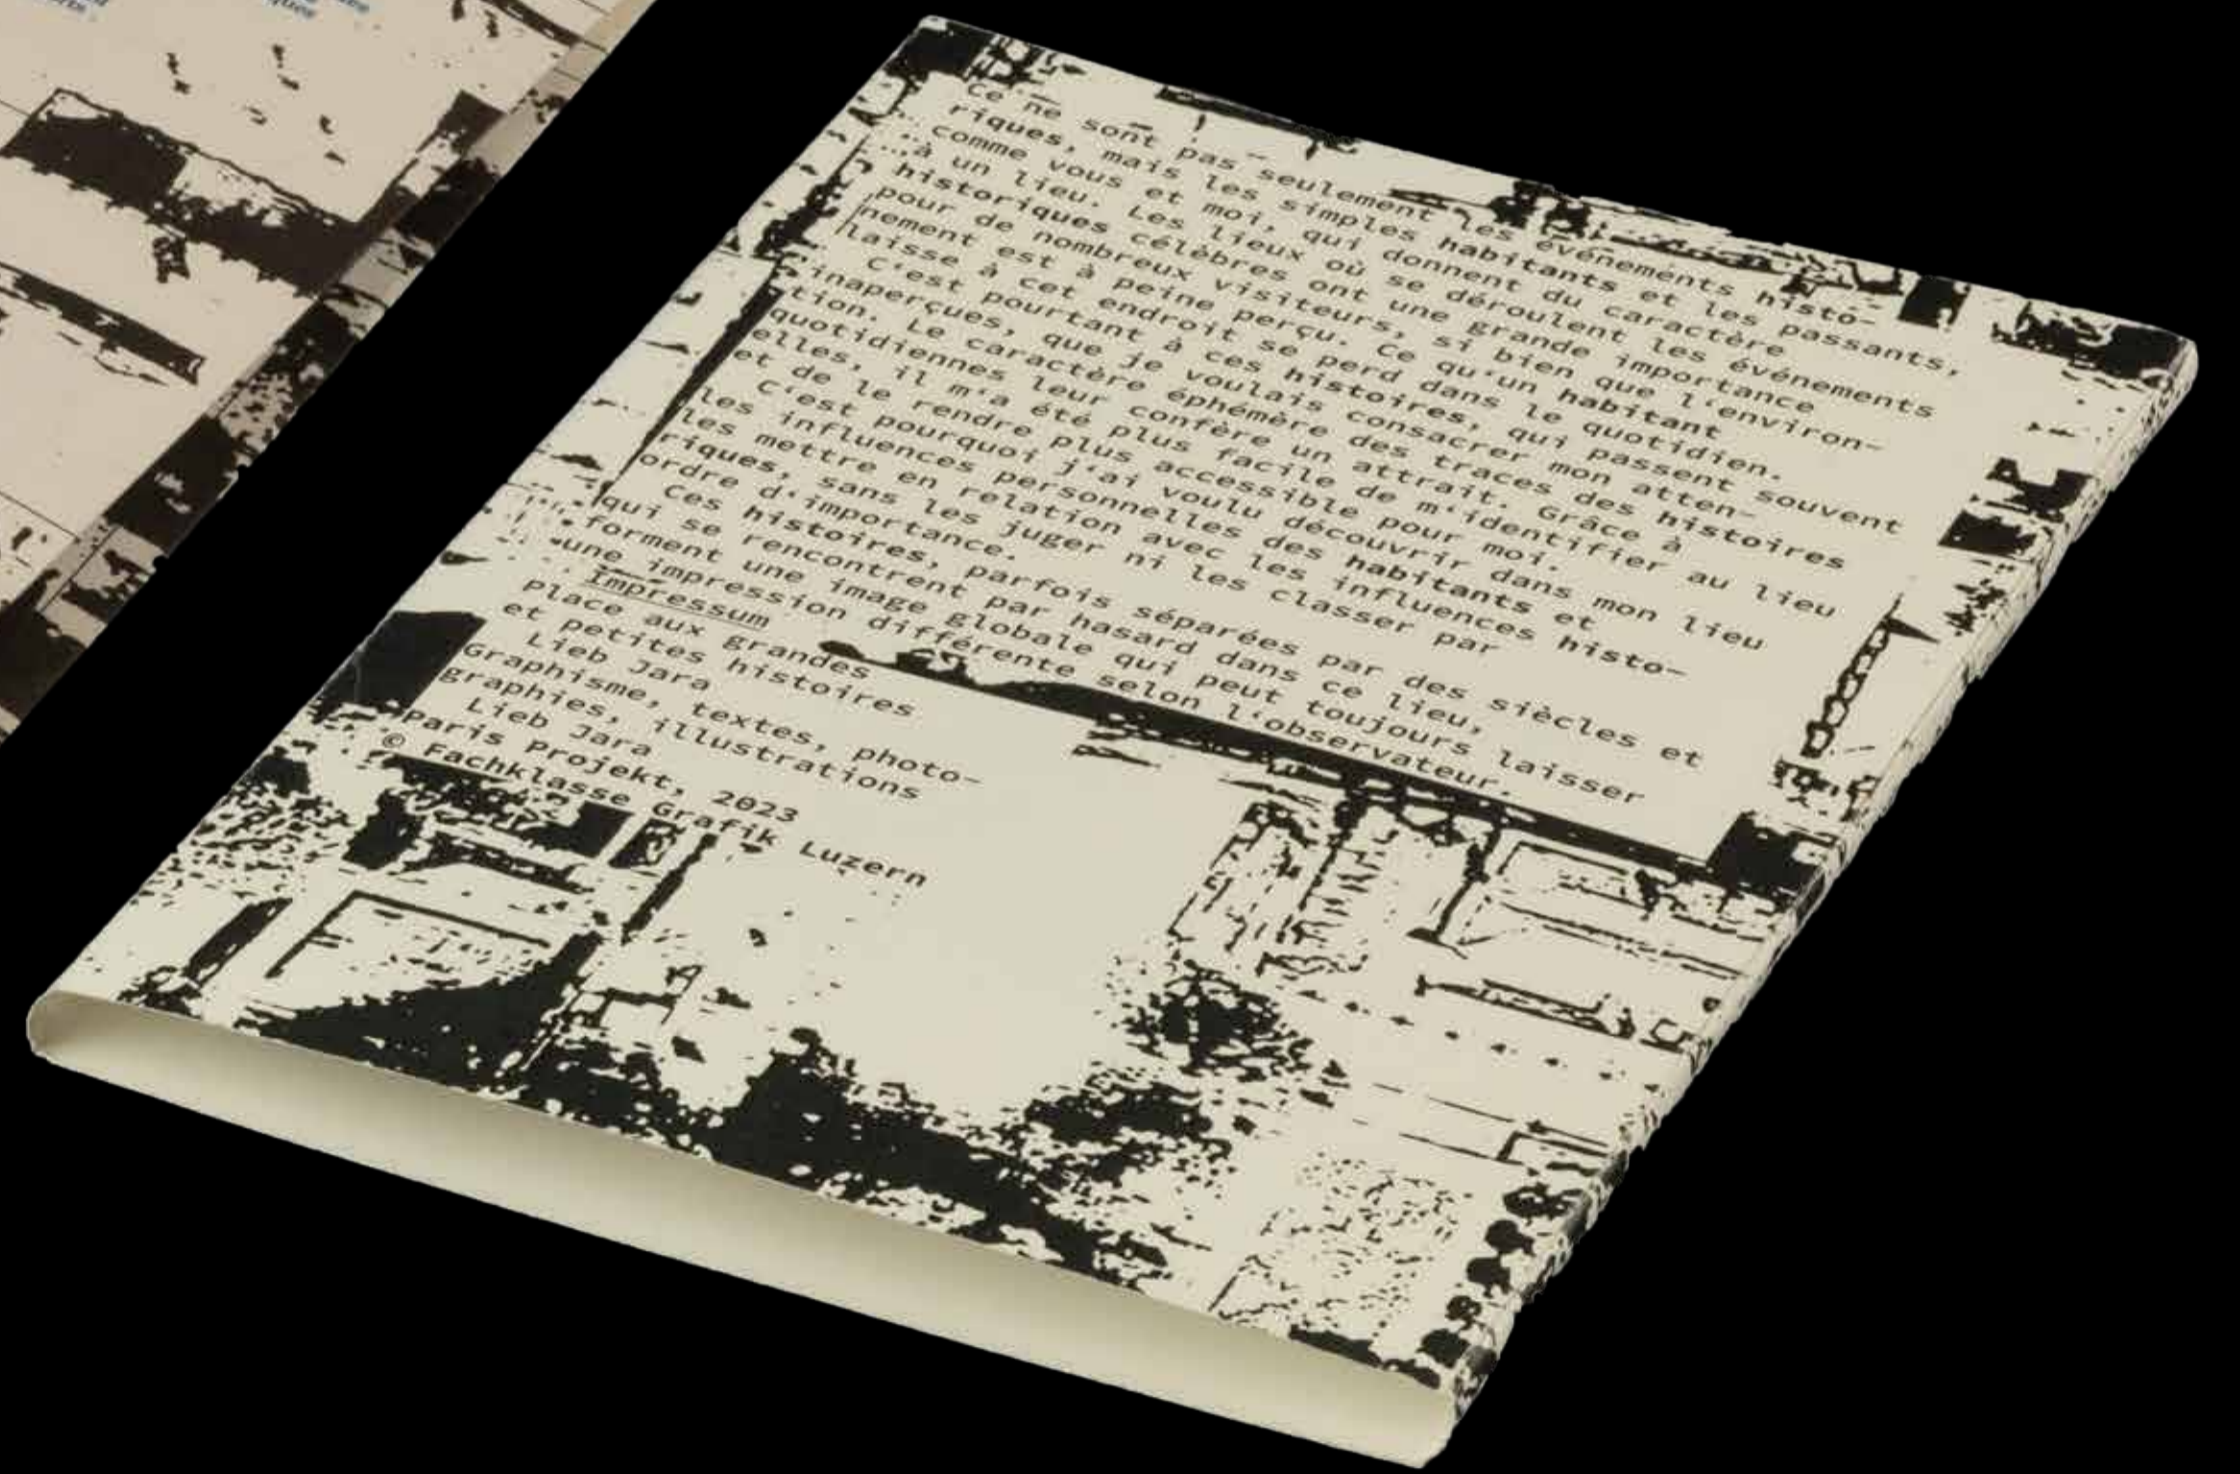 Ce ne sont pas seulement les événements histo-
riques, mais les simples habitants et les passants,
comme vous et moi, qui donnent du caractère
à un lieu. Les lieux où se déroulent les événements
historiques célèbres ont une grande importance
pour de nombreux visiteurs, si bien que l‘environ-
nement est à peine perçu. Ce qu‘un habitant
laisse à cet endroit se perd dans le quotidien.
C‘est pourtant à ces histoires, qui passent souvent
inaperçues, que je voulais consacrer mon atten-
tion. Le caractère éphémère des traces des histoires
quotidiennes leur confère un attrait. Grâce à
elles, il m‘a été plus facile de m‘identifier au lieu
et de le rendre plus accessible pour moi.
C‘est pourquoi j‘ai voulu découvrir dans mon lieu
les influences personnelles des habitants et
les mettre en relation avec les influences histo-
riques, sans les juger ni les classer par
ordre d‘importance.
Ces histoires, parfois séparées par des siècles et
qui se rencontrent par hasard dans ce lieu,
forment une image globale qui peut toujours laisser
une impression différente selon l‘observateur.
Impressum
place aux grandes
et petites histoires
Lieb Jara
Graphisme, textes, photo-
graphies, illustrations
Lieb Jara
Paris Projekt, 2023
© Fachklasse Grafik Luzern